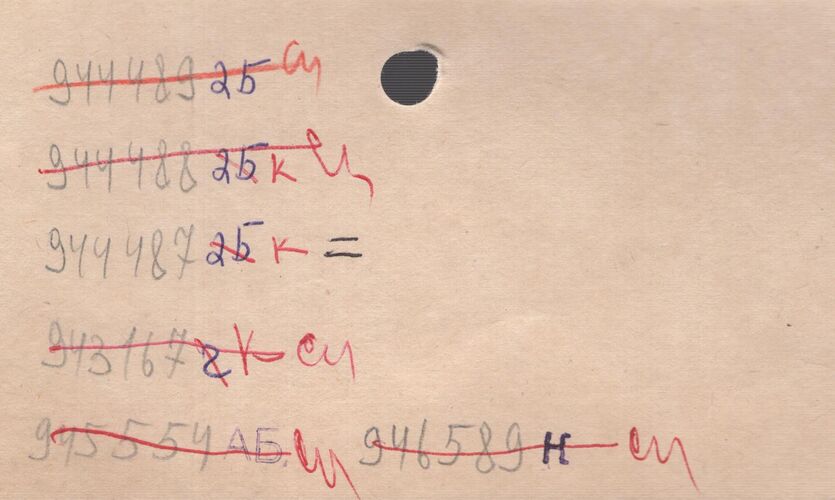 944489 2Б сц
944488 2Б к сц
944487 2Б к =
943167 2 К сц
945554 АБ. сц 946589 н сц